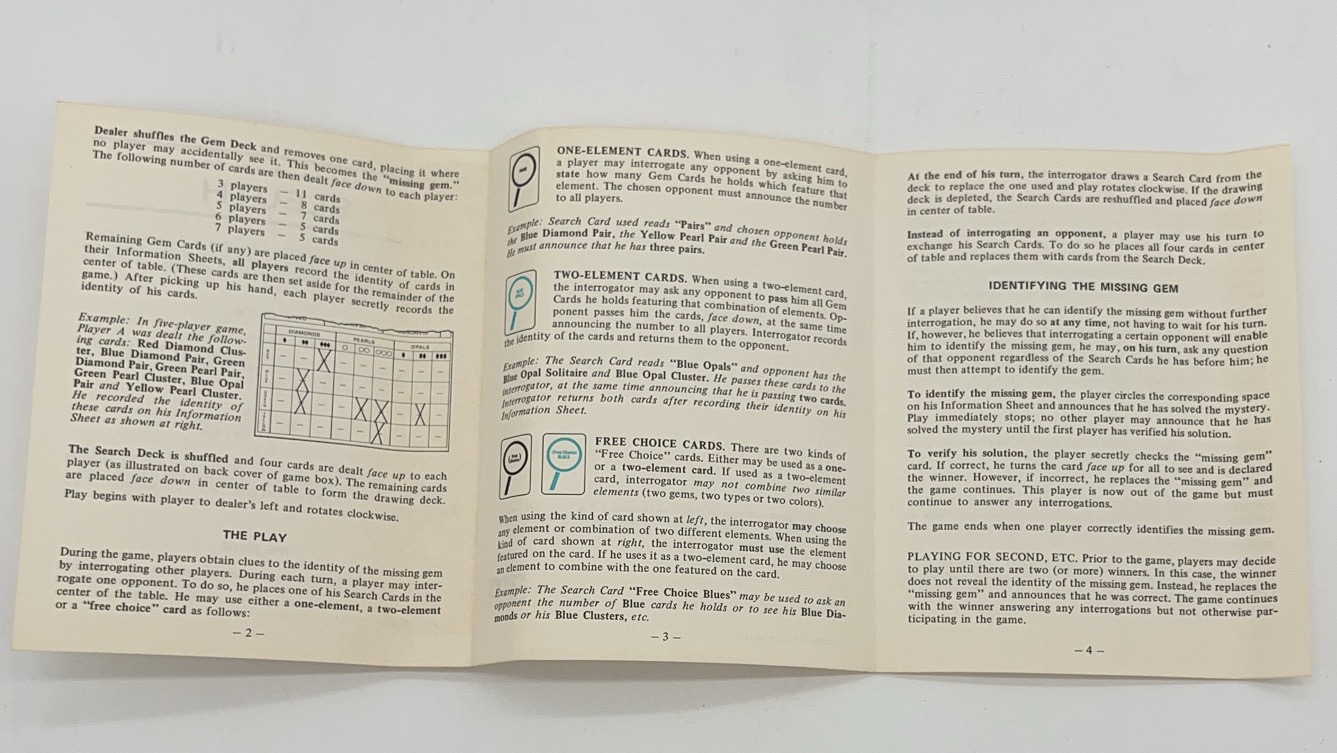 Dealer shuffles the Gem Deck and removes one card, placing it where
no player may accidentally see it. This becomes the "missing gem."
The following number of cards are then dealt face down to each player:
3 players – 11 cards
4 players – 8 cards
5 players – 7 cards
6 players – 5 cards
7 players – 5 cards
Remaining Gem Cards (if any) are placed face up in center of table. On
their Information Sheets, all players record the identity of cards in
center of table. (These cards are then set aside for the remainder of the
game.) After picking up his hand, each player secretly records the
identity of his cards.
Example: In five-player game,
Player A was dealt the follow-
ing cards: Red Diamond Clus-
ter, Blue Diamond Pair, Green
Diamond Pair, Green Pearl Pair,
Green Pearl Cluster, Blue Opal
Pair and Yellow Pearl Cluster.
He recorded the identity of
these cards on his Information
Sheet as shown at right.
DIAMONDS PEARLS OPALS
The Search Deck is shuffled and four cards are dealt face up to each
player (as illustrated on back cover of game box). The remaining cards
are placed face down in center of table to form the drawing deck.
Play begins with player to dealer's left and rotates clockwise.
THE PLAY
During the game, players obtain clues to the identity of the missing gem
by interrogating other players. During each turn, a player may inter-
rogate one opponent. To do so, he places one of his Search Cards in the
center of the table. He may use either a one-element, a two-element
or a "free choice" card as follows:
– 2 –
ONE-ELEMENT CARDS. When using a one-element card,
a player may interrogate any opponent by asking him to
state how many Gem Cards he holds which feature that
element. The chosen opponent must announce the number
to all players.
Example: Search Card used reads "Pairs" and chosen opponent holds
the Blue Diamond Pair, the Yellow Pearl Pair and the Green Pearl Pair.
He must announce that he has three pairs.
TWO-ELEMENT CARDS. When using a two-element card,
the interrogator may ask any opponent to pass him all Gem
Cards he holds featuring that combination of elements. Op-
ponent passes him the cards, face down, at the same time
announcing the number to all players. Interrogator records
the identity of the cards and returns them to the opponent.
Example: The Search Card reads "Blue Opals" and opponent has the
Blue Opal Solitaire and Blue Opal Cluster. He passes these cards to the
interrogator, at the same time announcing that he is passing two cards.
Interrogator returns both cards after recording their identity on his
Information Sheet.
Free Choice
Free Choice
BLUES
FREE CHOICE CARDS. There are two kinds of
"Free Choice" cards. Either may be used as a one-
or a two-element card. If used as a two-element
card, interrogator may not combine two similar
elements (two gems, two types or two colors).
When using the kind of card shown at left, the interrogator may choose
any element or combination of two different elements. When using the
kind of card shown at right, the interrogator must use the element
featured on the card. If he uses it as a two-element card, he may choose
an element to combine with the one featured on the card.
Example: The Search Card "Free Choice Blues" may be used to ask an
opponent the number of Blue cards he holds or to see his Blue Dia-
monds or his Blue Clusters, etc.
– 3 –
At the end of his turn, the interrogator draws a Search Card from the
deck to replace the one used and play rotates clockwise. If the drawing
deck is depleted, the Search Cards are reshuffled and placed face down
in center of table.
Instead of interrogating an opponent, a player may use his turn to
exchange his Search Cards. To do so he places all four cards in center
of table and replaces them with cards from the Search Deck.
IDENTIFYING THE MISSING GEM
If a player believes that he can identify the missing gem without further
interrogation, he may do so at any time, not having to wait for his turn.
If, however, he believes that interrogating a certain opponent will enable
him to identify the missing gem, he may, on his turn, ask any question
of that opponent regardless of the Search Cards he has before him; he
must then attempt to identify the gem.
To identify the missing gem, the player circles the corresponding space
on his Information Sheet and announces that he has solved the mystery.
Play immediately stops; no other player may announce that he has
solved the mystery until the first player has verified his solution.
To verify his solution, the player secretly checks the "missing gem"
card. If correct, he turns the card face up for all to see and is declared
the winner. However, if incorrect, he replaces the "missing gem" and
the game continues. This player is now out of the game but must
continue to answer any interrogations.
The game ends when one player correctly identifies the missing gem.
PLAYING FOR SECOND, ETC. Prior to the game, players may decide
to play until there are two (or more) winners. In this case, the winner
does not reveal the identity of the missing gem. Instead, he replaces the
"missing gem" and announces that he was correct. The game continues
with the winner answering any interrogations but not otherwise par-
ticipating in the game.
– 4 –